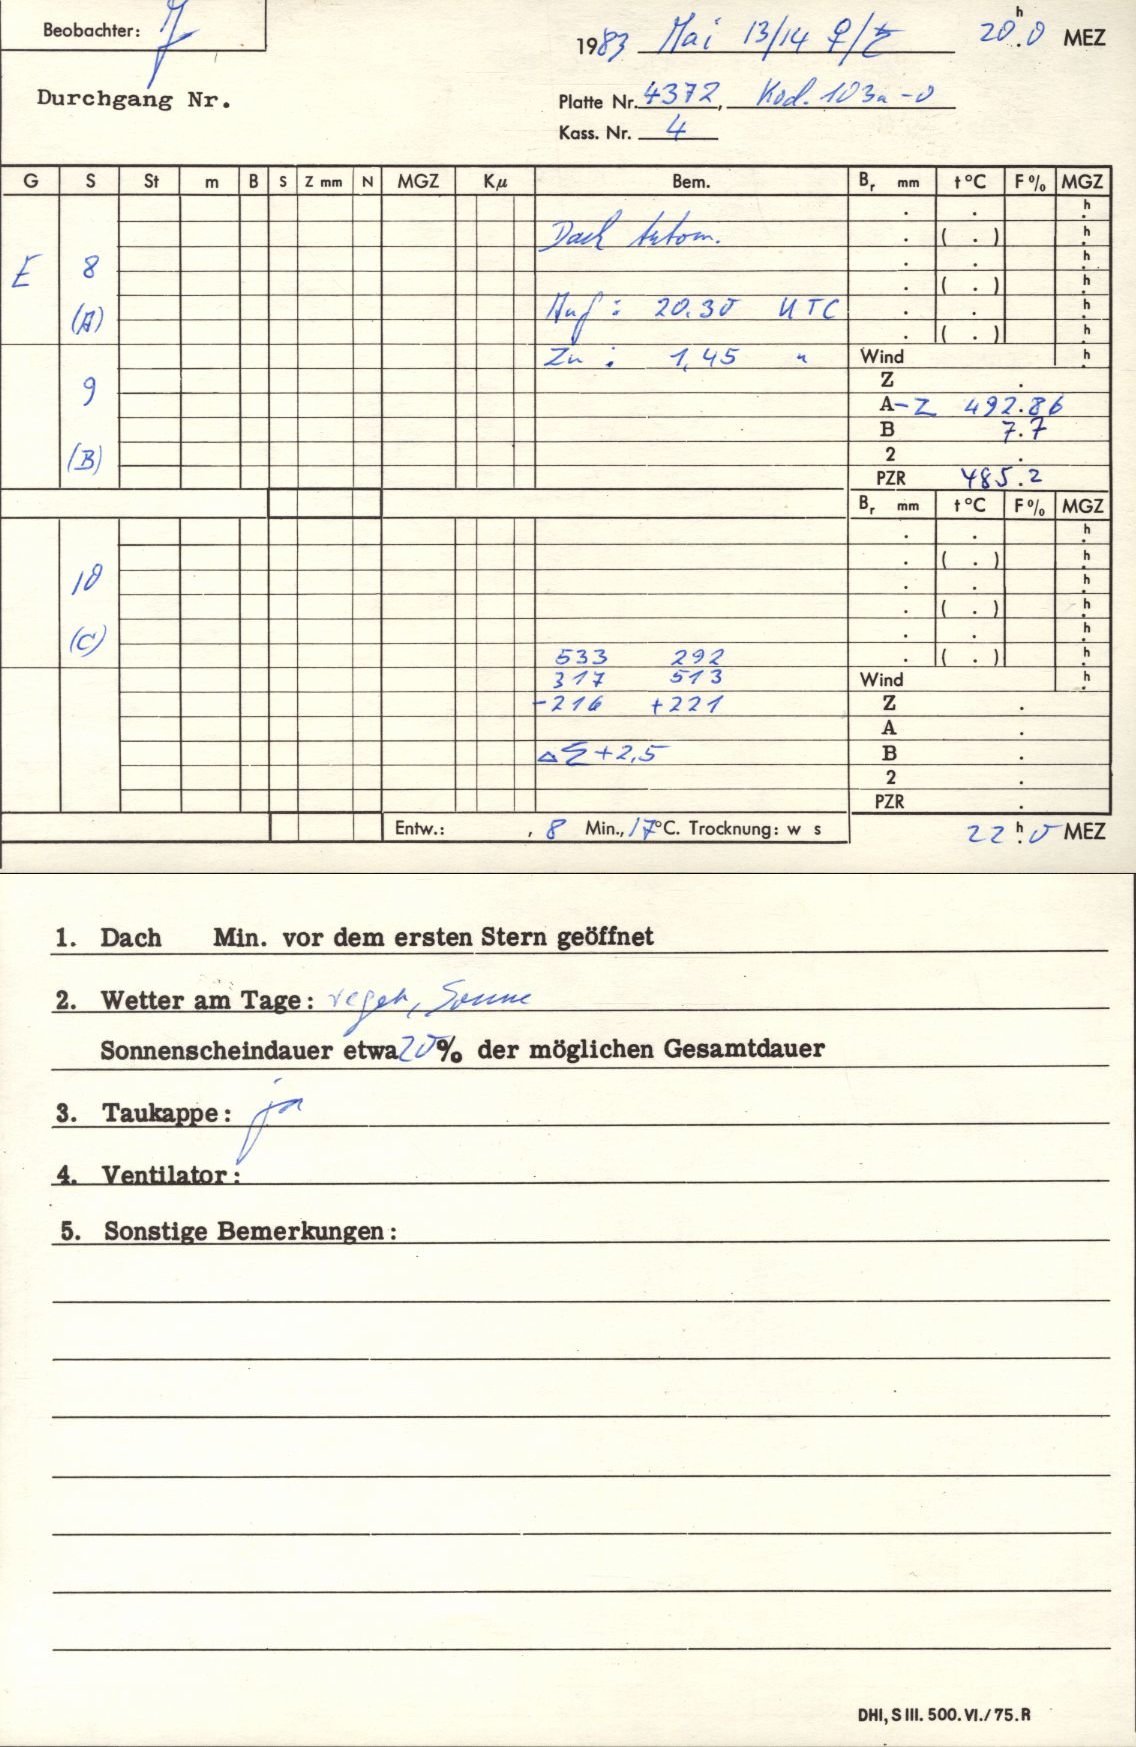 Beobachter:
1983 Mai 13/14 ♀/♄ 20h.0 MEZ
Durchgang Nr.
Platte Nr. 4372, Kod. 103a-0
Kass. Nr. 4
G S St m B S Z mm N MGZ Kμ Bem. Br mm t °C F % MGZ
. . h
Dach Autom. . ( . ) h
E 8 . . h
. ( . ) h
(A) Auf : 20.30 UTC . . h
. ( . ) h
Zu : 1,45 " Wind h
9 Z .
A-Z 492.86
B 7.7
(B) 2 .
PZR 485.2
Br mm t °C F % MGZ
. . h
. ( . ) h
10 . . h
. ( . ) h
(C) . . h
533 292 . ( . ) h
317 513 Wind h
-216 +221 Z .
A .
Δ Σ +2,5 B .
2 .
PZR .
Entw.: , 8 Min., 17 °C. Trocknung: w s
22h.0 MEZ
1. Dach Min. vor dem ersten Stern geöffnet
2. Wetter am Tage: regen, Sonne
Sonnenscheindauer etwa 20 % der möglichen Gesamtdauer
3. Taukappe: ja
4. Ventilator:
5. Sonstige Bemerkungen:
DHI, S III. 500. VI./75. R